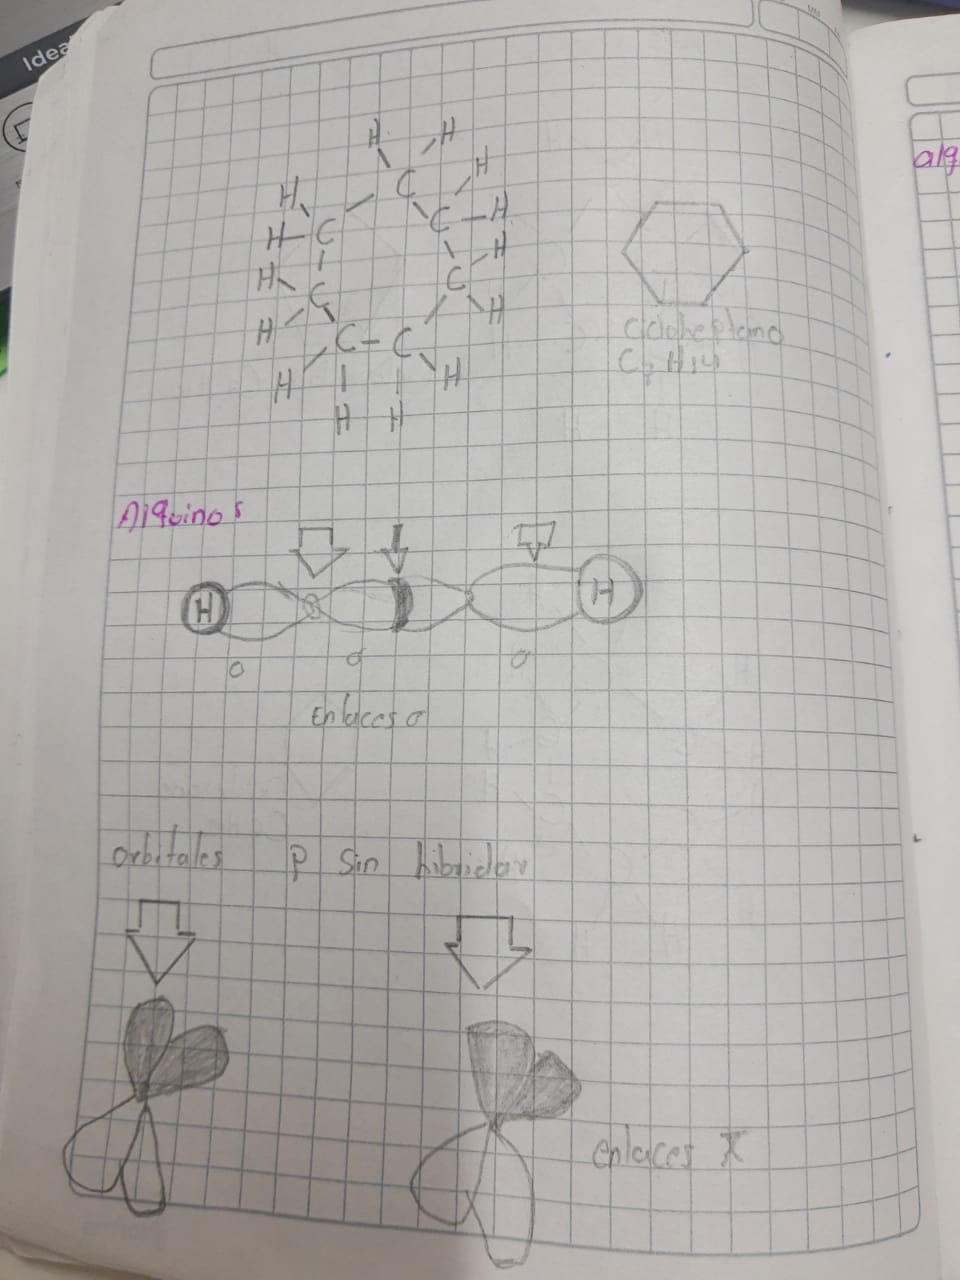 Idea
H H
H C H
H C C H
H C C H
H C - C H
H H
H H
cicloheptano
C7 H14
alq
Alquinos
H H
σ σ σ
Enlaces σ
orbitales P Sin hibridar
enlaces π